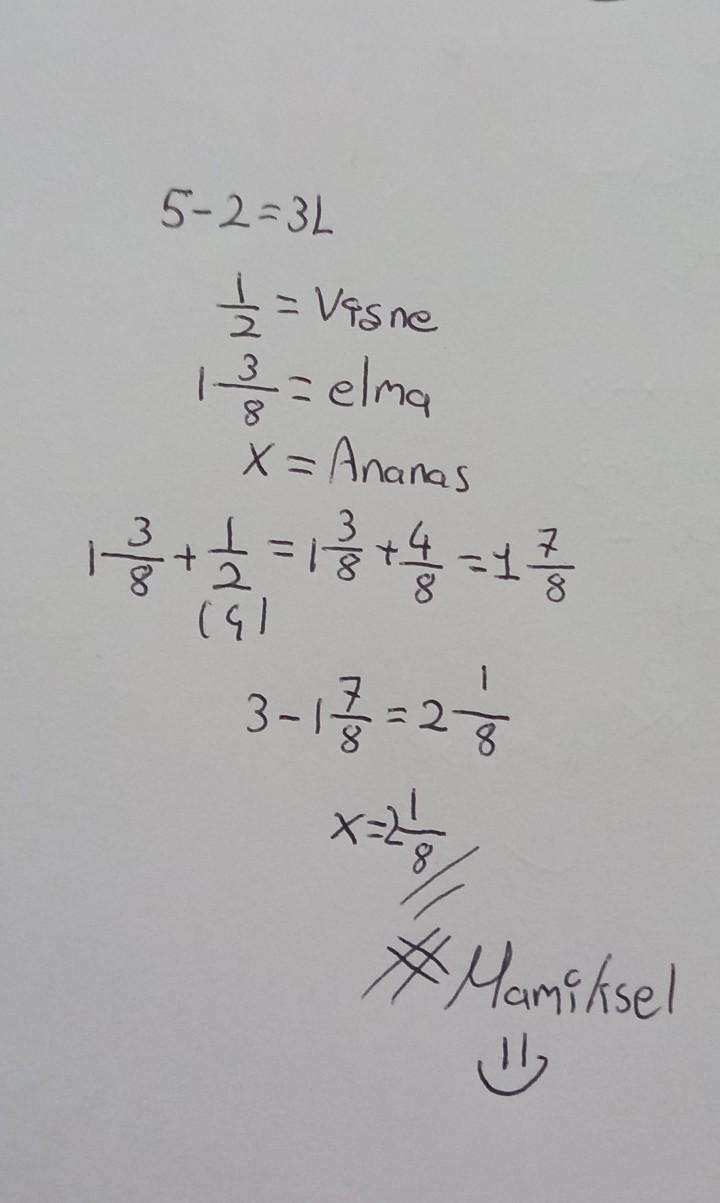 5-2=3L
1/2 = Vişne
1 3/8 = elma
x = Ananas
1 3/8 + 1/2 = 1 3/8 + 4/8 = 1 7/8
(4)
3 - 1 7/8 = 2 1/8
x = 2 1/8
#Mamiksel